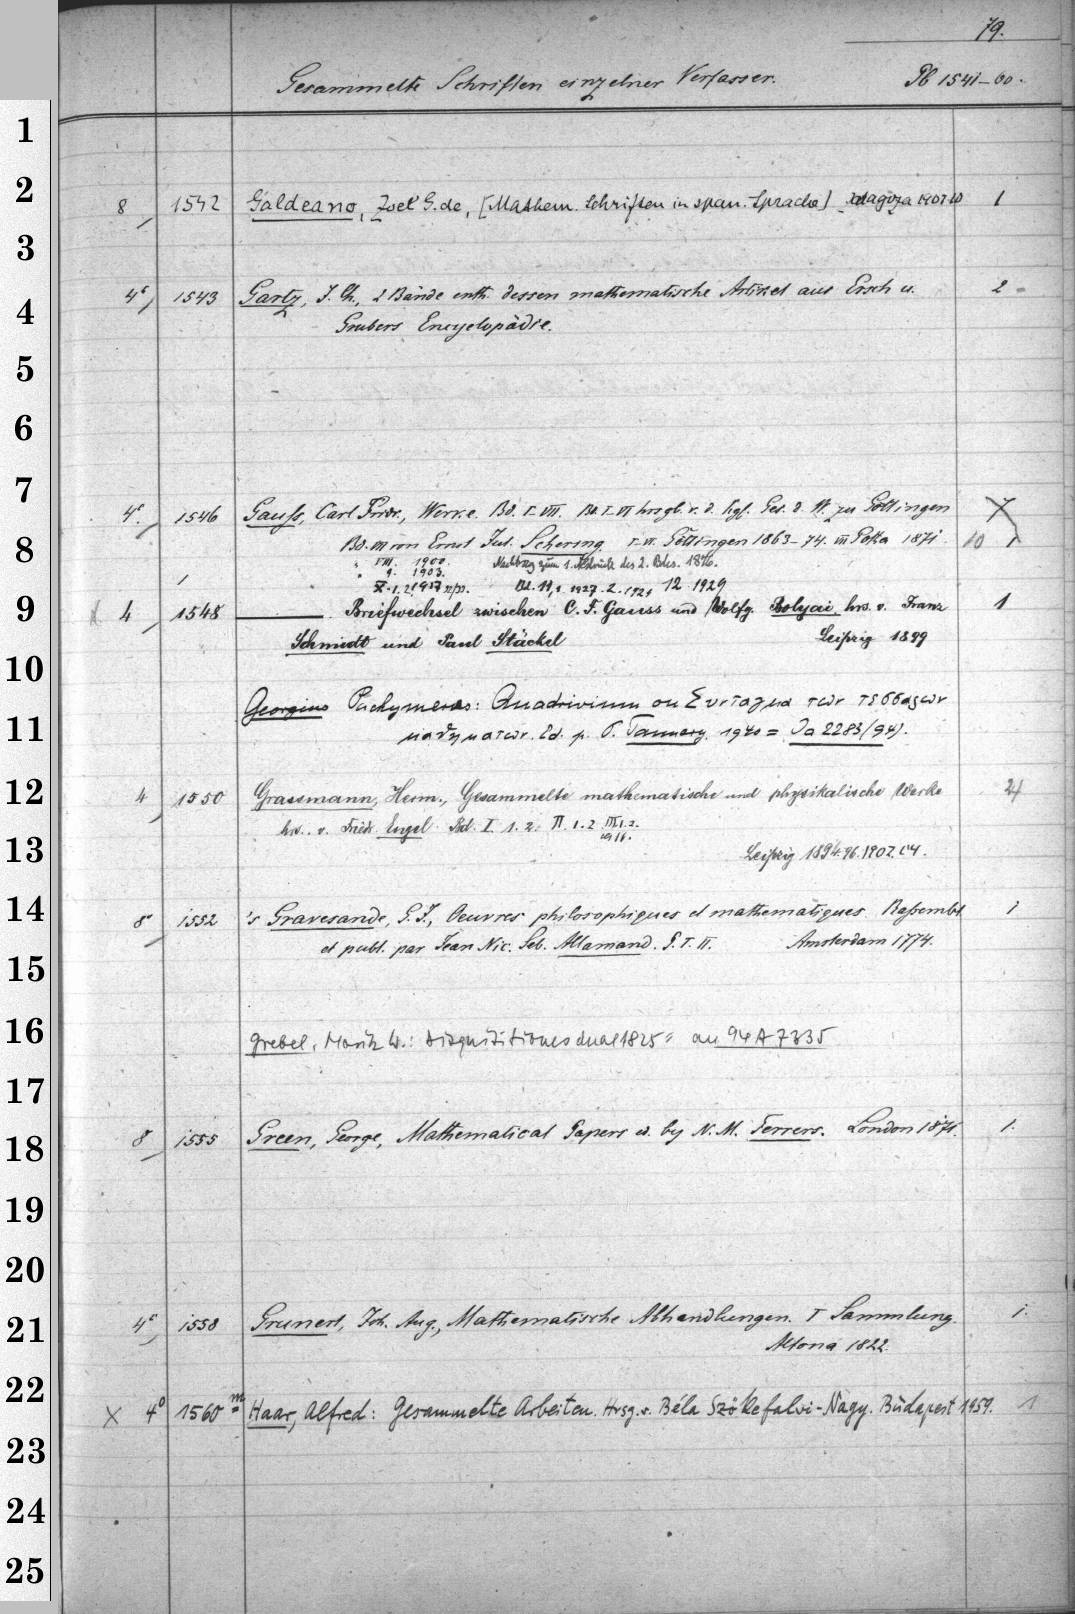 79.
Gesammelte Schriften einzelner Verfasser. Pb 1541-60.
1
2
8 1542 Galdeano, Zoel G. de, [Mathem. Schriften in span. Sprache] 1
3
4° 1543 Gartz, J. Ch., 2 Bände enth. dessen mathematische Artikel aus Ersch u. 2
4
Grubers Encyclopädie.
5
6
7
4° 1546 Gauß, Carl Friedr., Werke. Bd. I-VII. Bd. I-VI hrsgb. v. d. kgl. Ges. d. W. zu Göttingen 7
8
Bd. VII von Ernst Jul. Schering. I-VI. Göttingen 1863-74. VII Gotha 1871. 10
" VIII. 1900. Nachtrag zum 1. Abdruck des 2. Bdes. 1876.
" 9. 1903.
X.1.2. 1917 Bd. 11,1. 1927. 2. 1924 12 1929
9
4 1548 — . Briefwechsel zwischen C. F. Gauss und Wolfg. Bolyai, hrs. v. Franz 1
Schmidt und Paul Stäckel Leipzig 1899
10
Georgius Pachymeres: Quadrivium ou Συνταγμα των τεσσαρων
11
μαθηματων. Ed. p. P. Tannery 1940 = Ja 2283/94).
12
4 1550 Grassmann, Herm., Gesammelte mathematische und physikalische Werke
hrs. v. Friedr. Engel. Bd. I 1. 2. II. 1. 2 III 1. 2.
13
Leipzig 1894. 96. 1902. 04.
14
8° 1552 's Gravesande, G. J., Oeuvres philosophiques et mathématiques. Raßembl. 1
et publ. par Jean Nic. Seb. Allamand. P. I. II. Amsterdam 1774.
15
16
Grebel, Moritz W.: Disquisitiones 1825 an 94 A 7335
17
8° 1555 Green, George, Mathematical Papers ed. by N. M. Ferrers. London 1871. 1.
18
19
20
4° 1558 Grunert, Joh. Aug., Mathematische Abhandlungen. I Sammlung. 1.
21
Altona 1822.
22
X 4° 1560 m Haar, Alfred: Gesammelte Arbeiten. Hrsg. v. Béla Szökefalvi-Nagy. Budapest 1959. 1
23
24
25